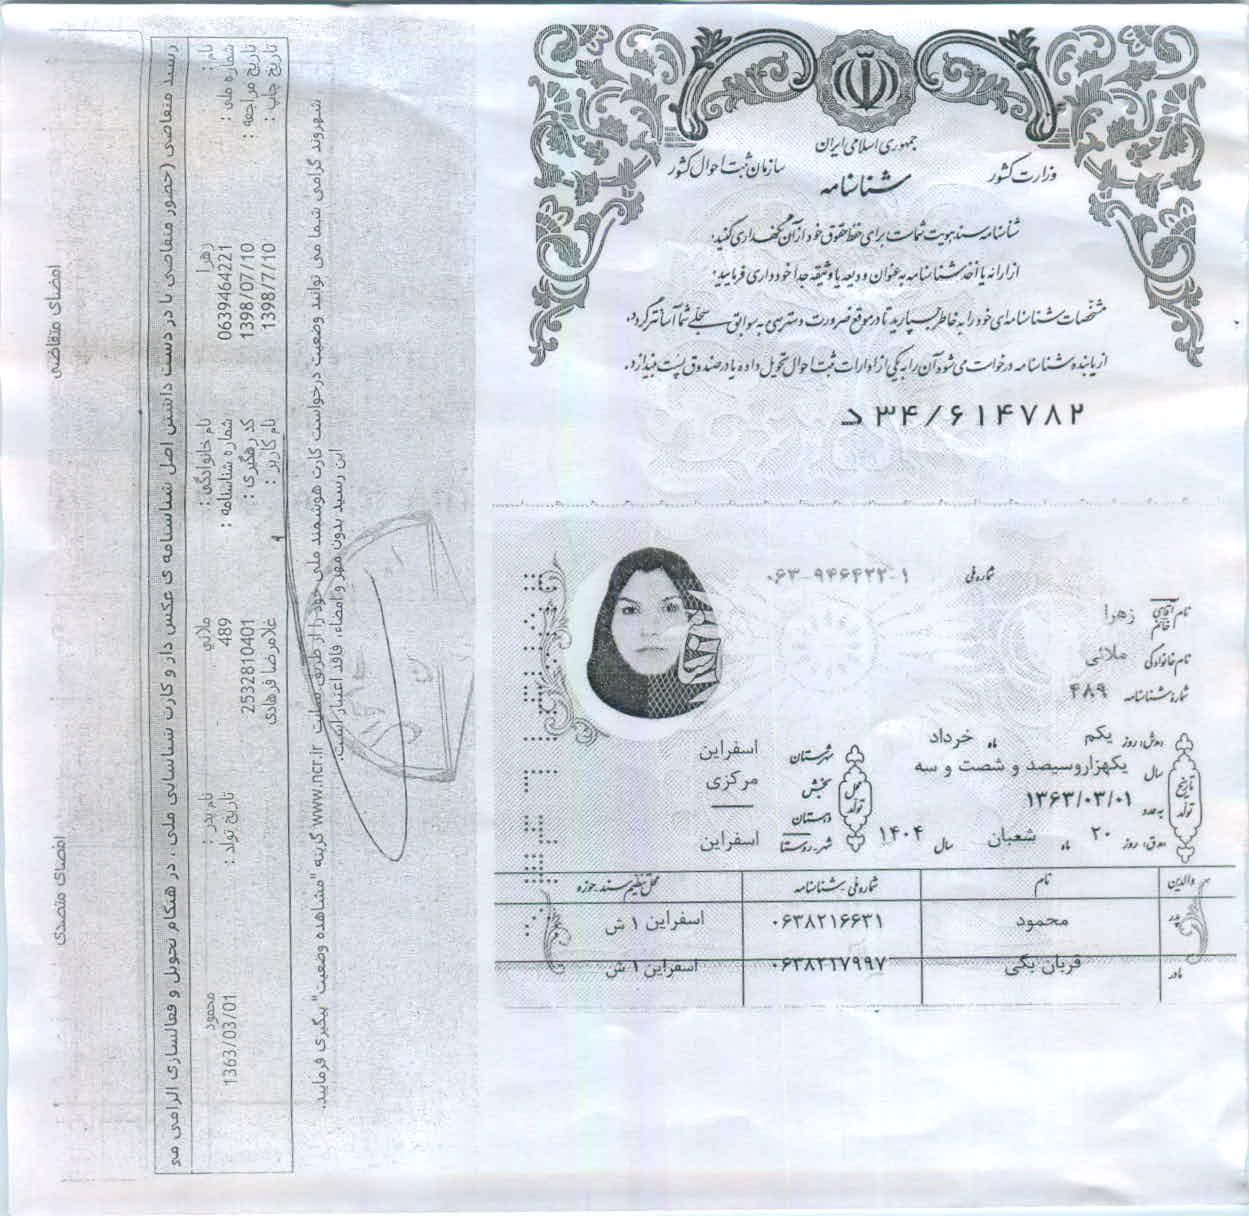 جمهوری اسلامی ایران
وزارت کشور
سازمان ثبت احوال کشور
شناسنامه
شناسنامه سند هویت شماست برای حفظ حقوق خود از آن نگهداری کنید؛
از ارائه یا اخذ شناسنامه به عنوان ودیعه یا وثیقه جدا خودداری فرمایید؛
مشخصات شناسنامه‌ای خود را به خاطر بسپارید تا در موقع ضرورت دسترسی به سوابق سجلی شما آسانتر گردد.
از یابنده شناسنامه درخواست می‌شود آن را به یکی از ادارات ثبت احوال تحویل داده یا در صندوق پست بیندازد.
د ۳۴/۶۱۴۷۸۲
شماره ملی ۰۶۳-۹۴۶۴۲۲-۱
نام آقای خانم زهرا
نام خانوادگی ملائی
شماره شناسنامه ۴۸۹
تاریخ تولد
ه‍.ش، روز یکم ماه خرداد
سال یکهزاروسیصد و شصت و سه
به عدد ۱۳۶۳/۰۳/۰۱
ه‍.ق، روز ۲۰ ماه شعبان سال ۱۴۰۴
محل تولد
شهرستان اسفراین
بخش مرکزی
دهستان ——
شهر-روستا اسفراین
والدین نام شماره ملی-شناسنامه محل تنظیم سند حوزه
پدر محمود ۰۶۳۸۲۱۶۶۳۱ اسفراین ۱ ش
مادر قربان بگی ۰۶۳۸۲۱۷۹۹۷ اسفراین ۱ ش
رسید متقاضی (حضور متقاضی با در دست داشتن اصل شناسنامه ی عکس دار و کارت شناسایی ملی ، در هنگام تحویل و فعالسازی الزامی می
نام : زهرا نام خانوادگی : ملائی نام پدر : محمود
شماره ملی : 0639464221 شماره شناسنامه : 489 تاریخ تولد : 1363/03/01
تاریخ مراجعه : 1398/07/10 کد رهگیری : 2532810401
تاریخ چاپ : 1398/7/10 نام کاربر : غلامرضا فرهادی
شهروند گرامی شما می توانید وضعیت درخواست کارت هوشمند ملی خود را از طریق سایت www.ncr.ir گزینه "مشاهده وضعیت" پیگیری فرمایید.
این رسید بدون مهر و امضاء، فاقد اعتبار است.
امضای متقاضی امضای متصدی